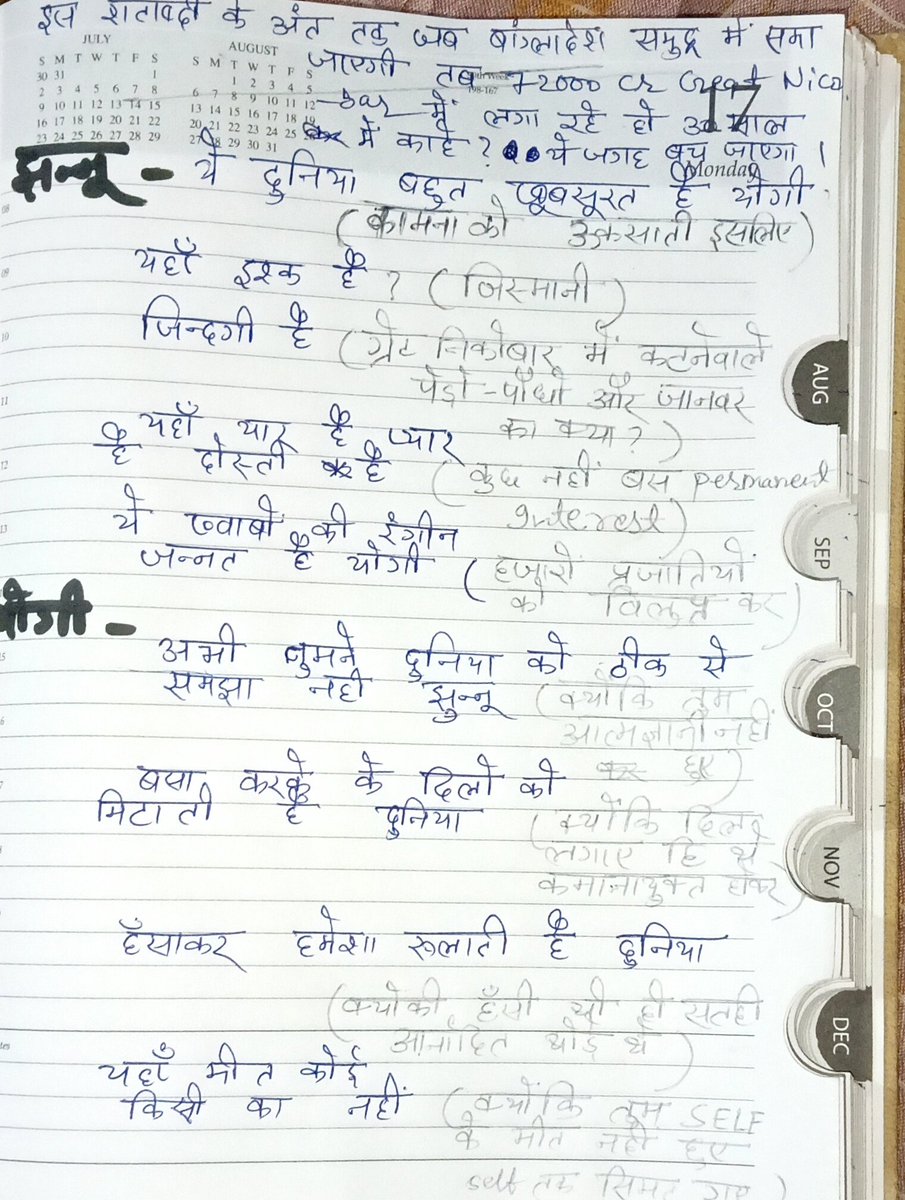 इस शताब्दी के अंत तक जब बांग्लादेश समुद्र में समा
जाएगी तब 72000 cr Great Nico
-bar में लगा रहे हो 30 साल
में काहे ? ये जगह बच जाएगा ।
JULY
S M T W T F S
30 31 1
2 3 4 5 6 7 8
9 10 11 12 13 14 15
16 17 18 19 20 21 22
23 24 25 26 27 28 29
AUGUST
S M T W T F S
1 2 3 4 5
6 7 8 9 10 11 12
13 14 15 16 17 18 19
20 21 22 23 24 25
27 28 29 30 31
198-167
17
Monday
झुन्नू - ये दुनिया बहुत खूबसूरत है योगी
(कामना को उकसाती इसलिए)
यहाँ इश्क है ? (जिस्मानी)
जिन्दगी है (ग्रेट निकोबार में कटनेवाले
पेड़ो-पौधो और जानवर
का क्या?)
यहाँ यार है प्यार
है दोस्ती है (कुछ नहीं बस permanent
Interest)
ये ख्वाबों की रंगीन
जन्नत है योगी (हजारों प्रजातियों
को विलुप्त कर)
योगी -
अभी तुमने दुनिया को ठीक से
समझा नही झुन्नू (क्योंकि तुम
आत्मज्ञानी नहीं
हुए)
बसा करके के दिलो को
मिटाती है दुनिया (क्योंकि दिल
लगाए हि थे
कमानायुक्त होकर)
हँसाकर हमेशा रूलाती है दुनिया
(क्योकी हँसी थी ही सतही
आनंदित थोड़े थे)
यहाँ मीत कोई
किसी का नहीं (क्योंकि तुम SELF
के मीत नही हुए
self तक सिमट गए)
AUG
SEP
OCT
NOV
DEC